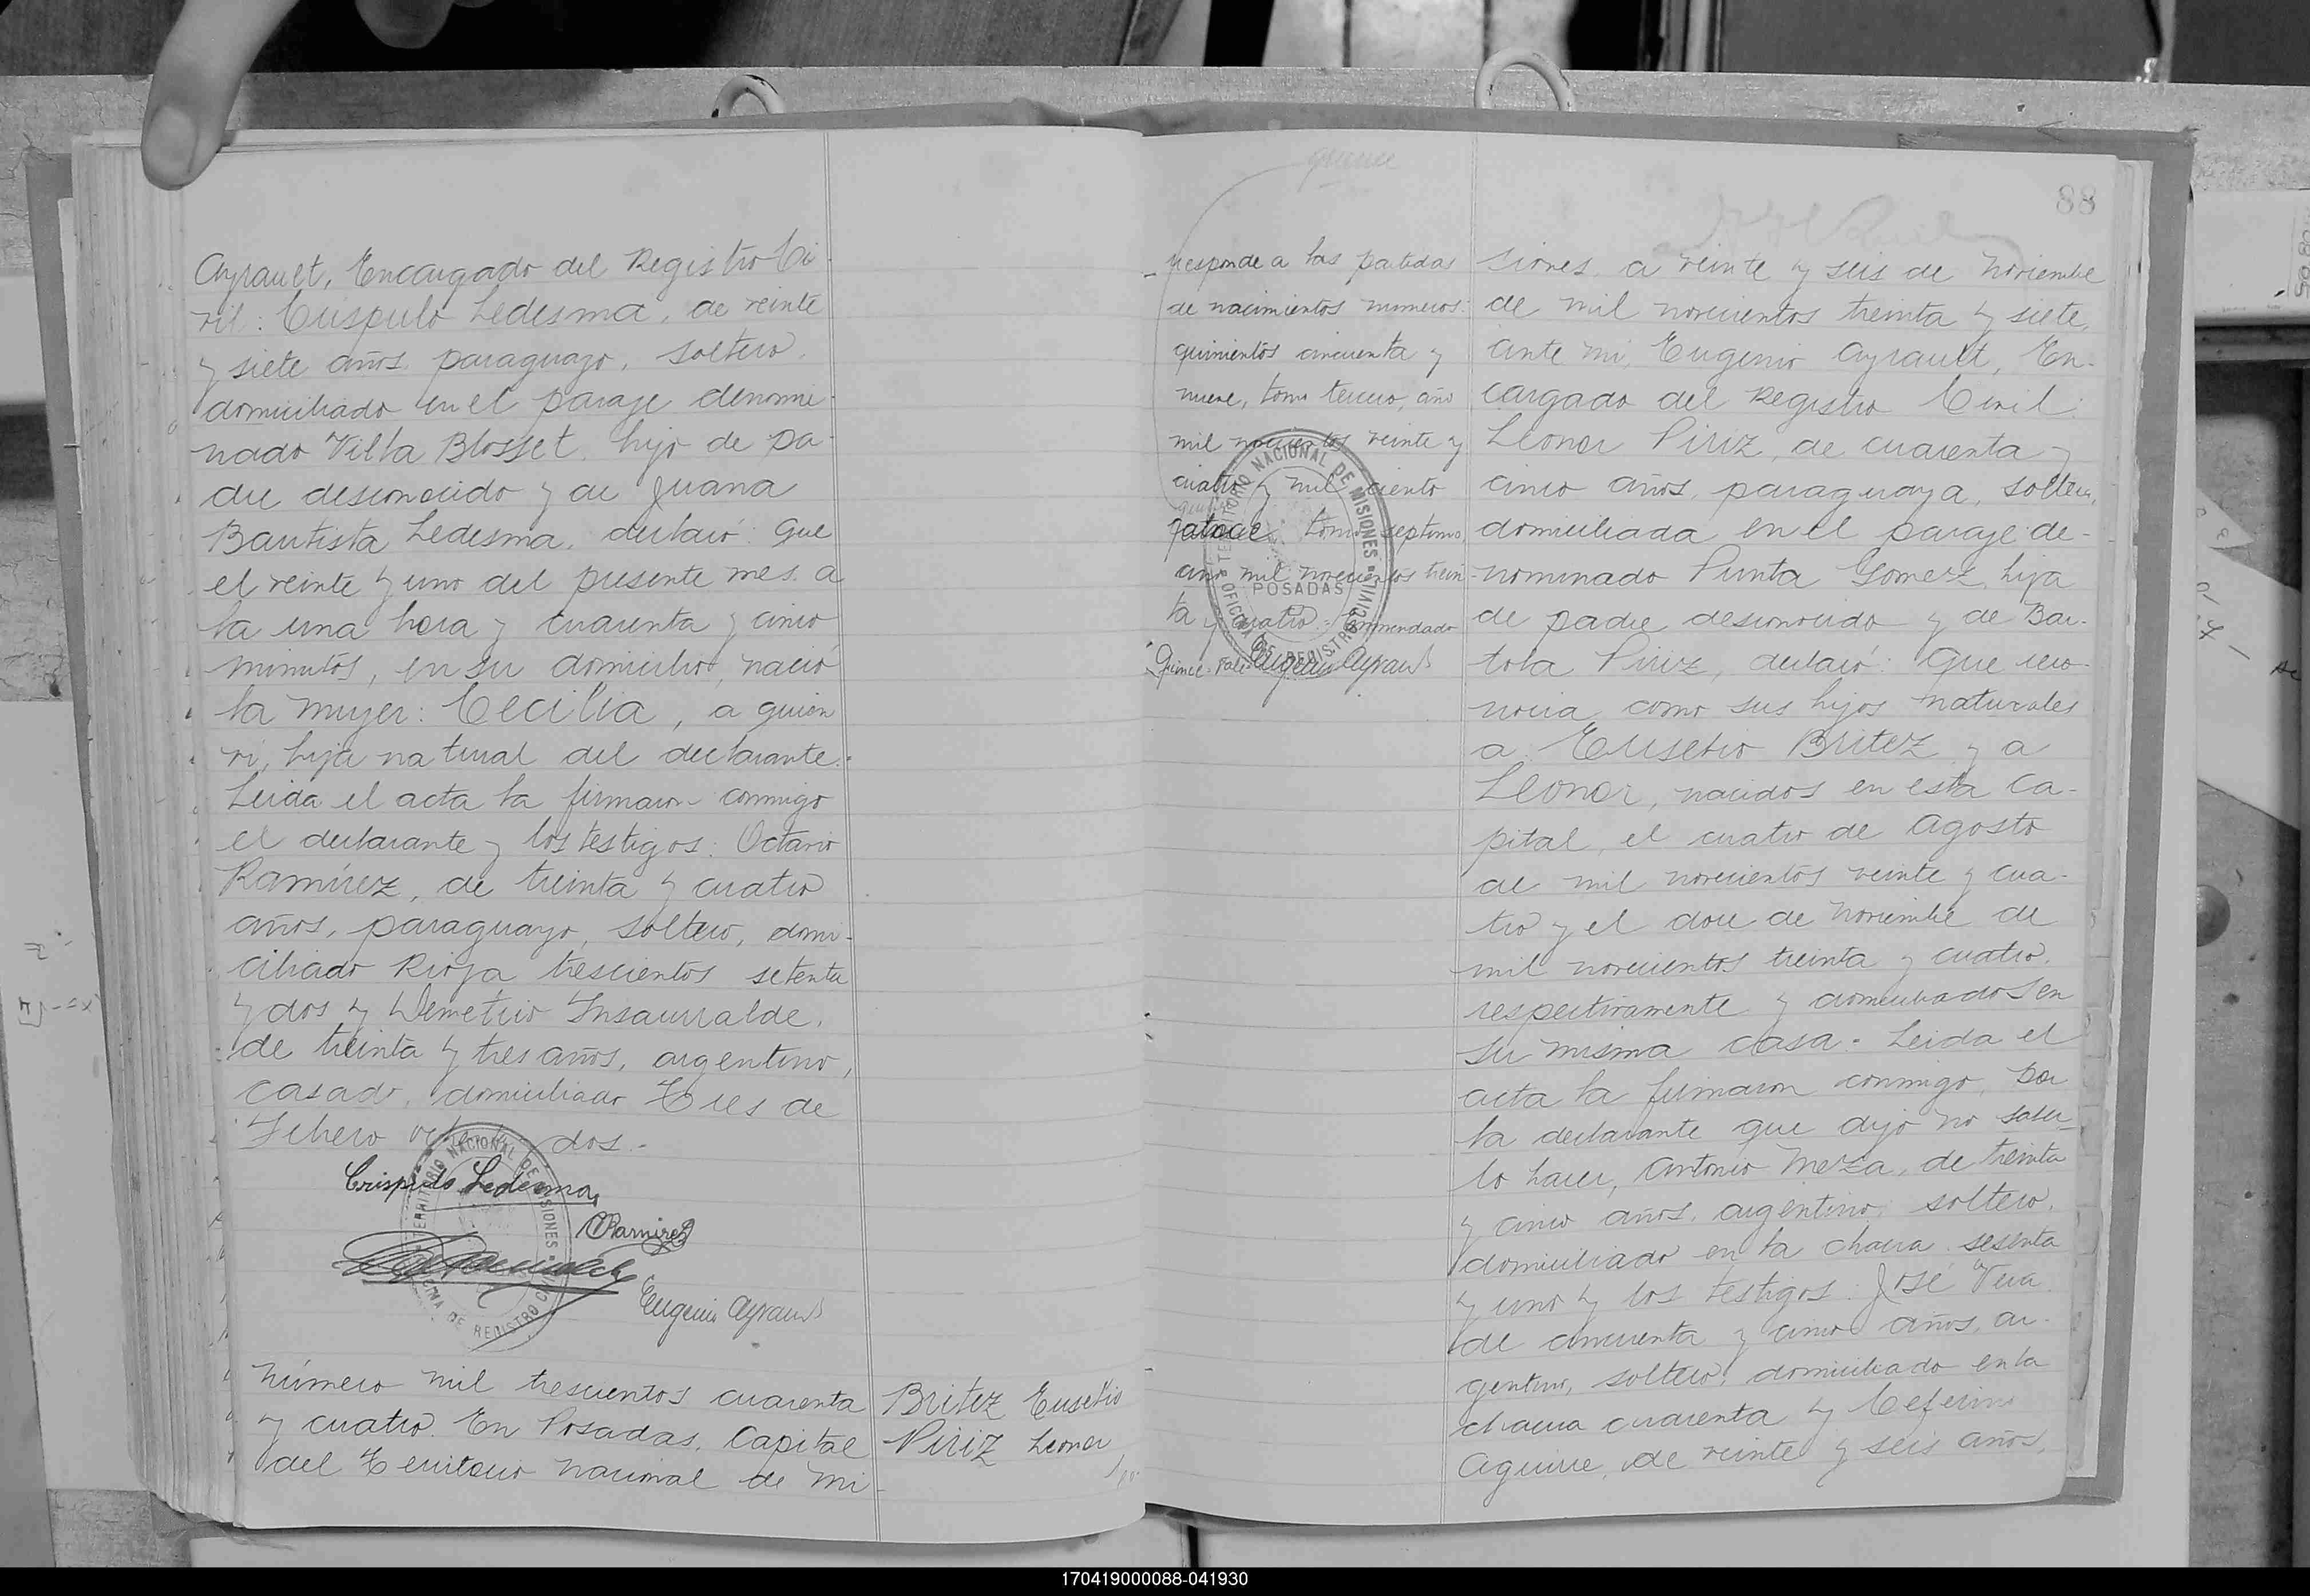 Ayrault, Encargado del Registro Ci-
vil: Crispulo Ledesma, de veinte
y siete años, paraguayo, soltero,
domiciliado en el paraje denomi-
nado Villa Blosset, hijo de pa-
dre desconocido y de Juana
Bautista Ledesma, declaró: Que
el veinte y uno del presente mes a
la una hora y cuarenta y cinco
minutos, en su domicilio, nació
la mujer: Cecilia, a quien
vi, hija natural del declarante.-
Leida el acta la firmaron conmigo
el declarante y los testigos: Octavio
Ramírez, de treinta y cuatro
años, paraguayo, soltero, domi-
ciliado Rioja trescientos setenta
y dos y Demetrio Insaurralde,
de treinta y tres años, argentino,
casado, domiciliado Tres de
Febrero dos.-
Crispulo Ledesma
ORamirez
Eugenio Ayrault
TERRITORIO NACIONAL DE MISIONES
OFICINA DE REGISTRO CIVIL
Número mil trescientos cuarenta
y cuatro. En Posadas, Capital
del Territorio Nacional de Mi-
Britez Eusebio
Piriz Leonor
quince
88
rresponde a las partidas
de nacimientos numeros:
quinientos cincuenta y
nueve, tomo tercero, año
mil novecientos veinte y
cuatro y mil ciento
quince
catorce tomo septimo,
año mil novecientos trein-
ta y cuatro. Enmendado
Quince. Vale Eugenio Ayrault
TERRITORIO NACIONAL DE MISIONES
POSADAS
OFICINA DE REGISTRO CIVIL
siones, a veinte y seis de Noviembre
de mil novecientos treinta y siete,
ante mi, Eugenio Ayrault, En-
cargado del Registro Civil:
Leonor Piriz, de cuarenta y
cinco años, paraguaya, soltera,
domiciliada en el paraje de-
nominado Punta Gomez, hija
de padre desconocido y de Bar-
tola Piriz, declaró: Que reco-
nocia como sus hijos naturales
a: Eusebio Britez y a
Leonor, nacidos en esta Ca-
pital, el cuatro de Agosto
de mil novecientos veinte y cua-
tro y el doce de Noviembre de
mil novecientos treinta y cuatro,
respectivamente y domiciliados en
su misma casa.- Leida el
acta la firmaron conmigo, por
la declarante que dijo no saber-
lo hacer, Antonio Meza, de treinta
y cinco años, argentino, soltero,
domiciliado en la chacra sesenta
y uno y los testigos: José Vera
de cincuenta y cinco años, ar-
gentino, soltero, domiciliado en la
chacra cuarenta y Ceferino
Aguirre, de veinte y seis años,
170419000088-041930